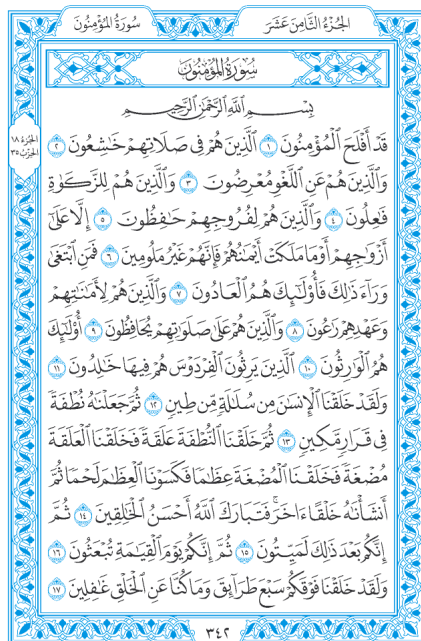 سُورَةُ المُؤْمِنُونَ
الجُزْءُ الثَّامِنَ عَشَرَ
سُورَةُ المُؤْمِنُونَ
الجُزْءُ ١٨
الحِزْبُ ٣٥
بِسْمِ اللَّهِ الرَّحْمَٰنِ الرَّحِيمِ
قَدْ أَفْلَحَ الْمُؤْمِنُونَ ١ الَّذِينَ هُمْ فِي صَلَاتِهِمْ خَٰشِعُونَ ٢
وَالَّذِينَ هُمْ عَنِ اللَّغْوِ مُعْرِضُونَ ٣ وَالَّذِينَ هُمْ لِلزَّكَوٰةِ
فَٰعِلُونَ ٤ وَالَّذِينَ هُمْ لِفُرُوجِهِمْ حَٰفِظُونَ ٥ إِلَّا عَلَىٰٓ
أَزْوَٰجِهِمْ أَوْ مَا مَلَكَتْ أَيْمَٰنُهُمْ فَإِنَّهُمْ غَيْرُ مَلُومِينَ ٦ فَمَنِ ابْتَغَىٰ
وَرَآءَ ذَٰلِكَ فَأُو۟لَٰٓئِكَ هُمُ الْعَادُونَ ٧ وَالَّذِينَ هُمْ لِأَمَٰنَٰتِهِمْ
وَعَهْدِهِمْ رَٰعُونَ ٨ وَالَّذِينَ هُمْ عَلَىٰ صَلَوَٰتِهِمْ يُحَافِظُونَ ٩ أُو۟لَٰٓئِكَ
هُمُ الْوَٰرِثُونَ ١٠ الَّذِينَ يَرِثُونَ الْفِرْدَوْسَ هُمْ فِيهَا خَٰلِدُونَ ١١
وَلَقَدْ خَلَقْنَا الْإِنسَٰنَ مِن سُلَٰلَةٍ مِّن طِينٍ ١٢ ثُمَّ جَعَلْنَٰهُ نُطْفَةً
فِي قَرَارٍ مَّكِينٍ ١٣ ثُمَّ خَلَقْنَا النُّطْفَةَ عَلَقَةً فَخَلَقْنَا الْعَلَقَةَ
مُضْغَةً فَخَلَقْنَا الْمُضْغَةَ عِظَٰمًا فَكَسَوْنَا الْعِظَٰمَ لَحْمًا ثُمَّ
أَنشَأْنَٰهُ خَلْقًا ءَاخَرَ ۚ فَتَبَارَكَ اللَّهُ أَحْسَنُ الْخَٰلِقِينَ ١٤ ثُمَّ
إِنَّكُم بَعْدَ ذَٰلِكَ لَمَيِّتُونَ ١٥ ثُمَّ إِنَّكُمْ يَوْمَ الْقِيَٰمَةِ تُبْعَثُونَ ١٦
وَلَقَدْ خَلَقْنَا فَوْقَكُمْ سَبْعَ طَرَآئِقَ وَمَا كُنَّا عَنِ الْخَلْقِ غَٰفِلِينَ ١٧
٣٤٢